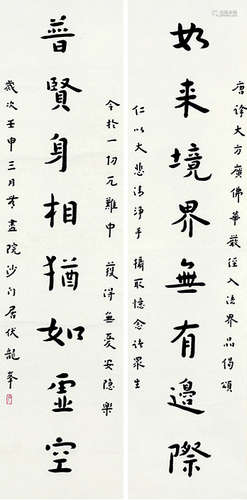 唐譯大方廣佛華嚴經入法界品偈頌
如来境界無有邊際
仁以大悲清淨手 攝取憶念諸眾生
令於一切厄難中 獲得無憂安隱樂
普賢身相猶如虛空
歲次壬申三月 院沙門居伏龍峯